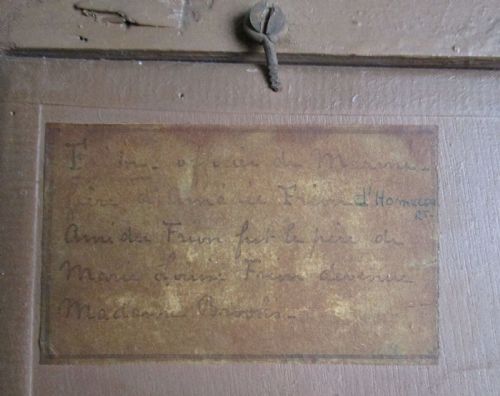 F officier de Marine
père d'Amédée Frion d'Homecou
RT-
Amédée Frion fut le père de
Marie Louise Frion devenue
Madame Brooks